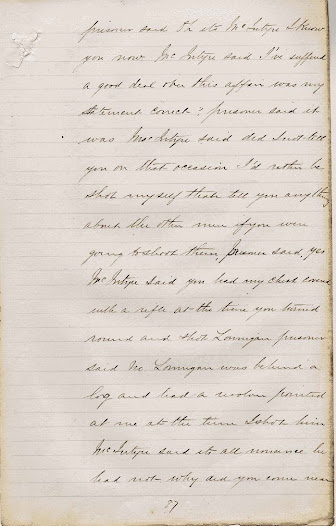 prisoner said oh its McIntyre I know
you now McIntyre said I've suffered
a good deal over this affair was my
statement correct? prisoner said it
was McIntyre said did I not tell
you on that occasion I'd rather be
shot myself than tell you anything
about the other men if you were
going to shoot them, prisoner said, yes
McIntyre said you had my chest covered
with a rifle at the time you turned
round and shot Lonnigan prisoner
said No Lonnigan was behind a
log and had a revolver pointed
at me at the time I shot him
McIntyre said its all nonsense he
had not why did you come near
27